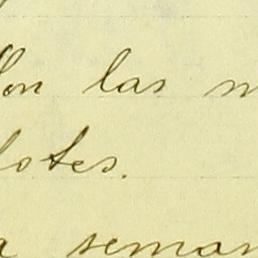 Con las m
lotes.
a seman